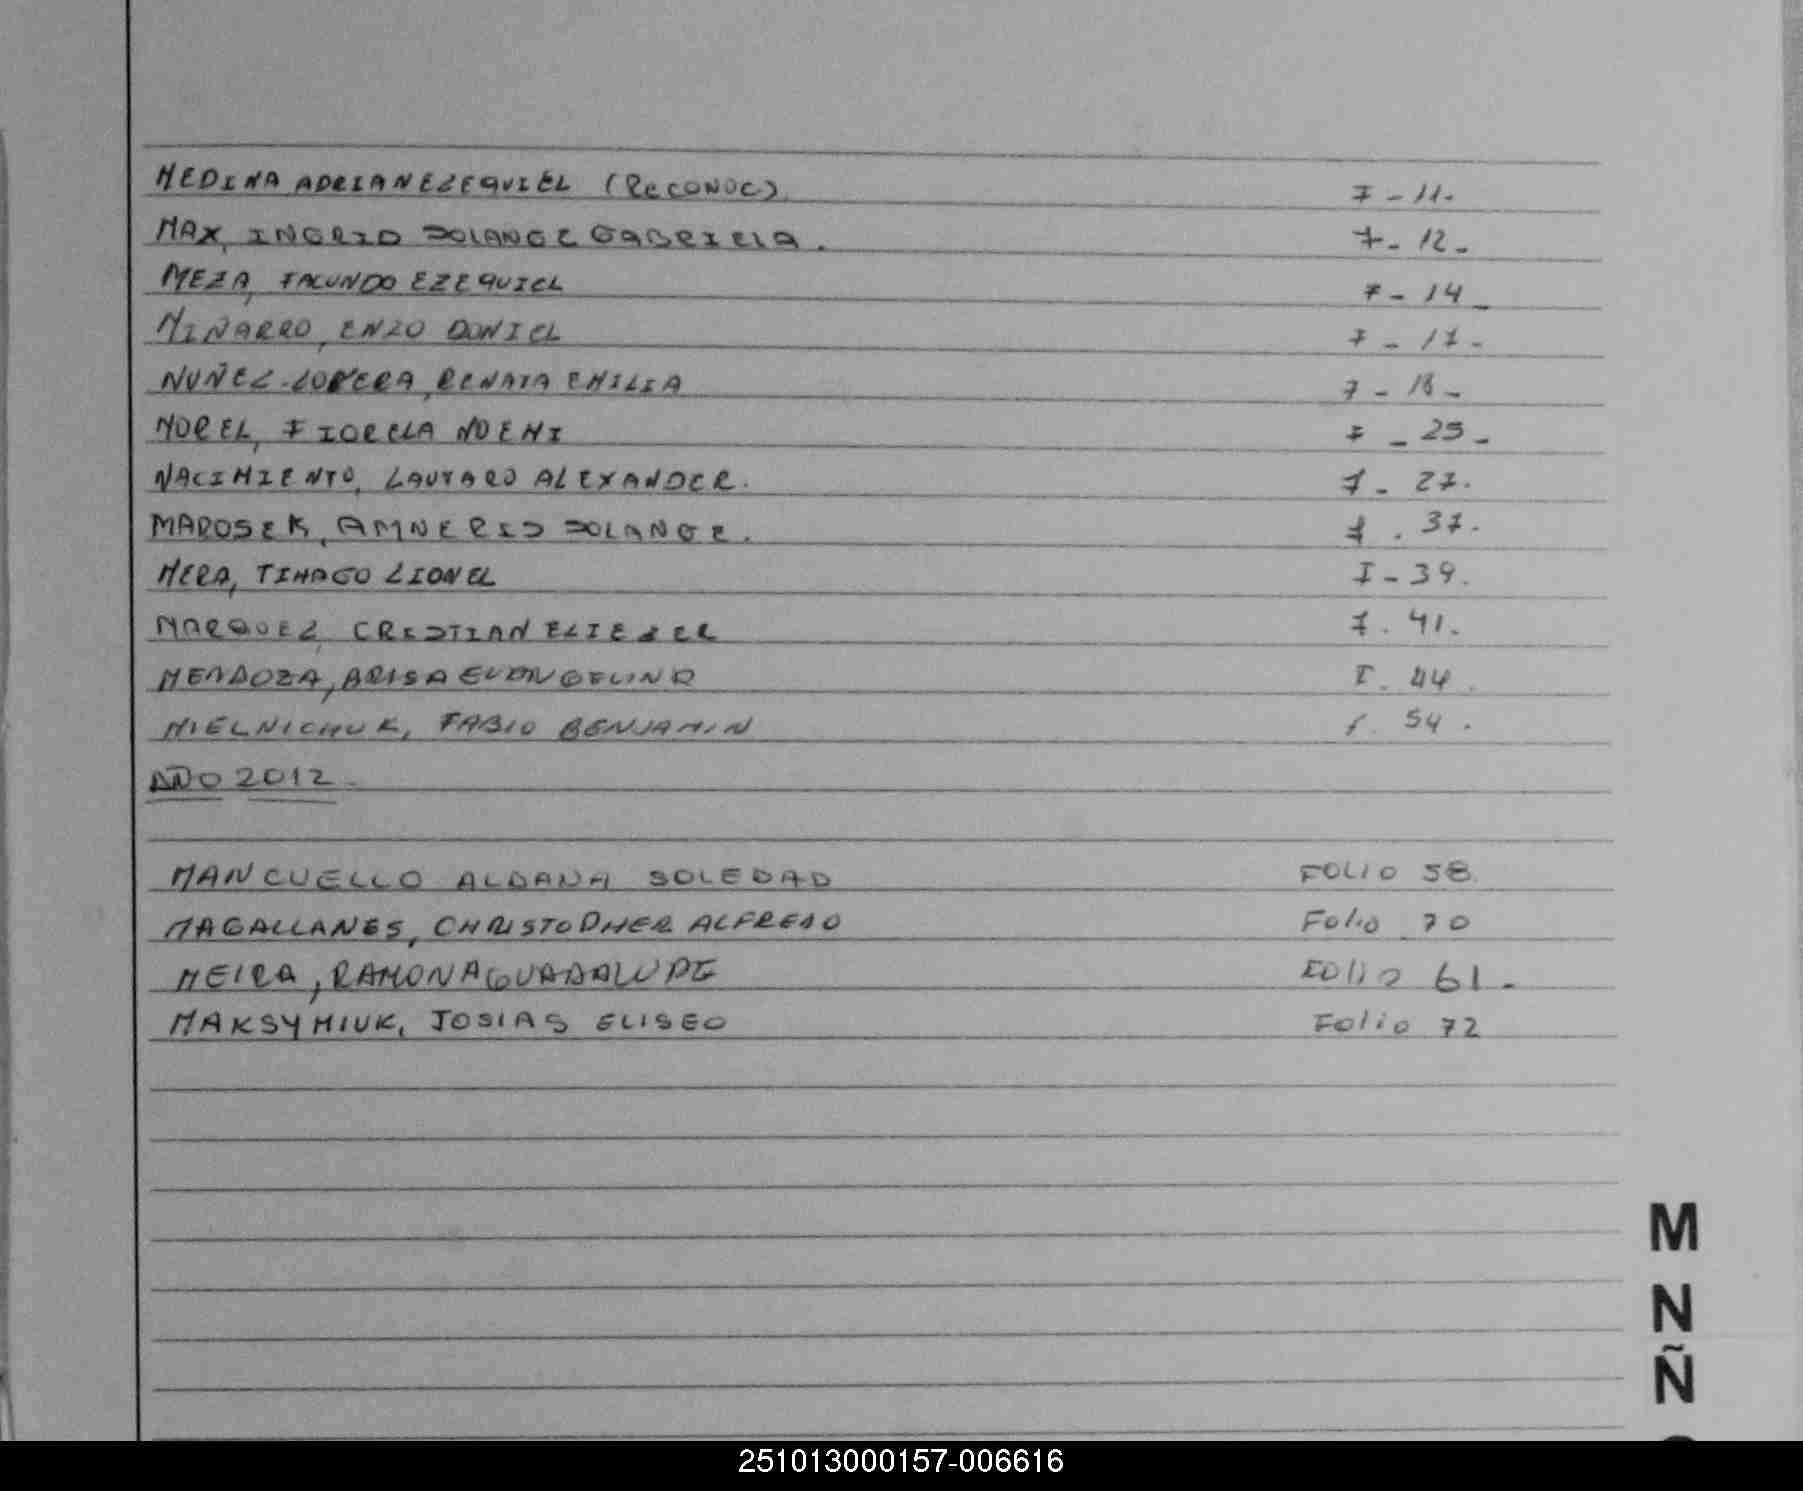 MEDINA ADRIAN EZEQUIEL (RECONOC) 7-11.
MAX, INGRID SOLANGE GABRIELA. 7-12-
MEZA, FACUNDO EZEQUIEL 7-14-
MIÑARRO, ENZO DANIEL 7-17-
NUÑEZ-LOVERA, RENATA EMILIA 7-18-
MOREL, FIORELLA NOEMI 7-25-
NACIMIENTO, LAUTARO ALEXANDER. 7-27.
MAROSEK, AMNERIS SOLANGE. 7.37.
MERA, TIHAGO LIONEL 7-39.
MARQUEZ, CRISTIAN ELIEZER 7.41.
MENDOZA, BRISA EVANGELINA F.44.
MIELNICHUK, FABIO BENJAMIN F.54.
AÑO 2012-
MANCUELLO ALDANA SOLEDAD FOLIO 58
MAGALLANES, CHRISTOPHER ALFREDO Folio 70
MEIRA, RAMONA GUADALUPE FOLIO 61.
MAKSYMIUK, JOSIAS ELISEO Folio 72
M
N
Ñ
251013000157-006616